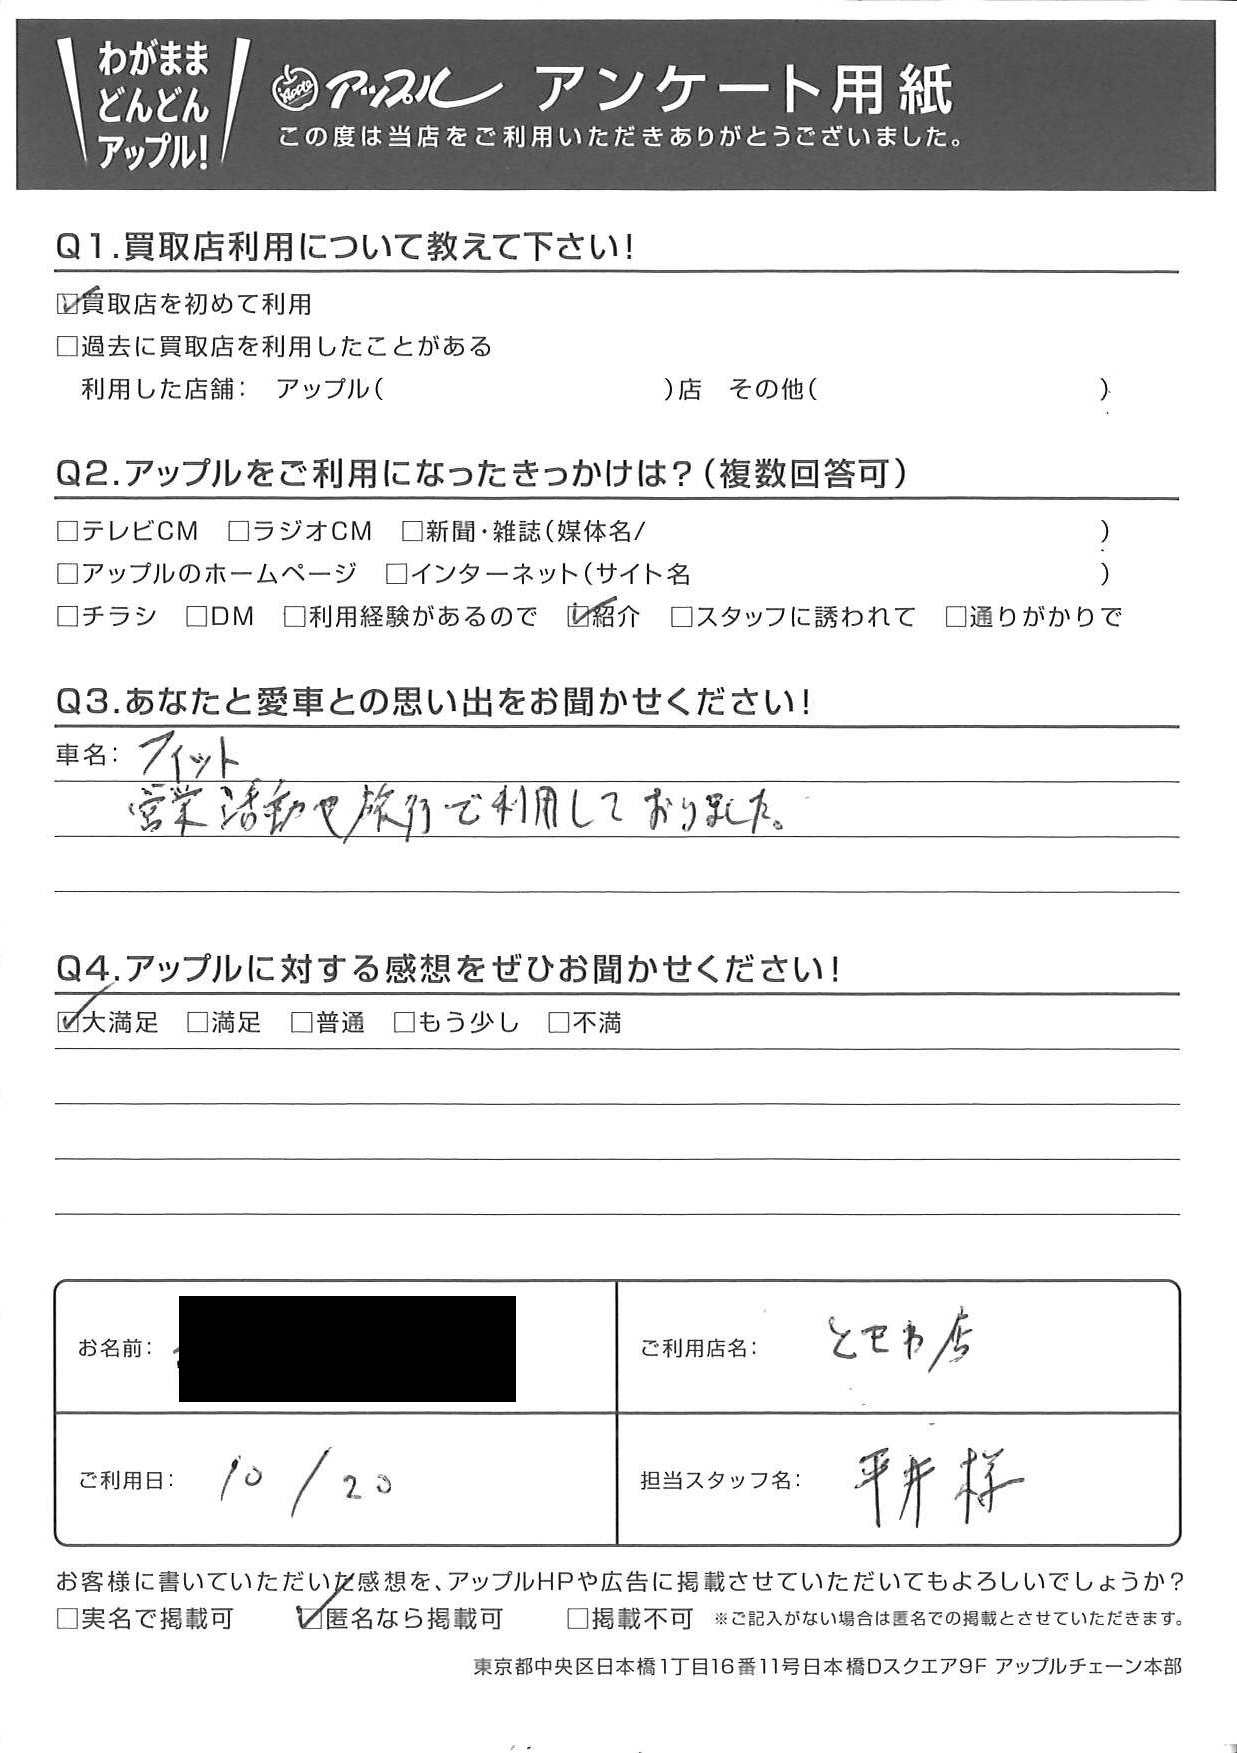 わがまま
どんどん
アップル!
Apple アップル アンケート用紙
この度は当店をご利用いただきありがとうございました。
Q1.買取店利用について教えて下さい!
☑買取店を初めて利用
□過去に買取店を利用したことがある
利用した店舗: アップル( )店 その他( )
Q2.アップルをご利用になったきっかけは?(複数回答可)
□テレビCM □ラジオCM □新聞・雑誌(媒体名/ )
□アップルのホームページ □インターネット(サイト名 )
□チラシ □DM □利用経験があるので ☑紹介 □スタッフに誘われて □通りがかりで
Q3.あなたと愛車との思い出をお聞かせください!
車名: フィット
営業活動や旅行で利用しておりました。
Q4.アップルに対する感想をぜひお聞かせください!
☑大満足 □満足 □普通 □もう少し □不満
お名前:
ご利用店名: ときわ店
ご利用日: 10/20
担当スタッフ名: 平井様
お客様に書いていただいた感想を、アップルHPや広告に掲載させていただいてもよろしいでしょうか?
□実名で掲載可 ☑匿名なら掲載可 □掲載不可 ※ご記入がない場合は匿名での掲載とさせていただきます。
東京都中央区日本橋1丁目16番11号日本橋Dスクエア9F アップルチェーン本部